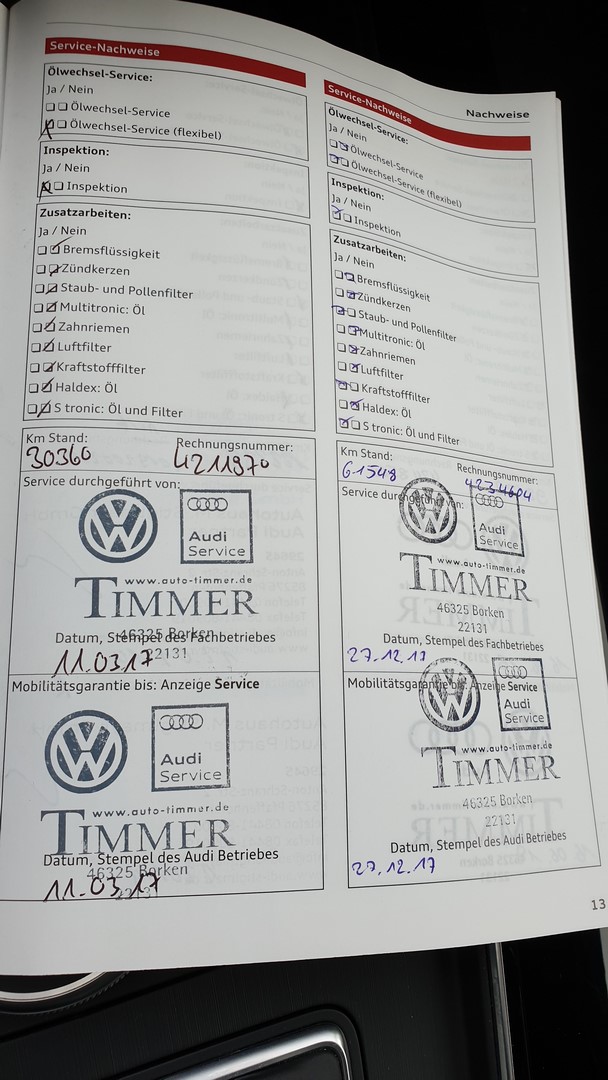 Service-Nachweise
Ölwechsel-Service:
Ja / Nein
Ölwechsel-Service
Ölwechsel-Service (flexibel)
Inspektion:
Ja / Nein
Inspektion
Zusatzarbeiten:
Ja / Nein
Bremsflüssigkeit
Zündkerzen
Staub- und Pollenfilter
Multitronic: Öl
Zahnriemen
Luftfilter
Kraftstofffilter
Haldex: Öl
S tronic: Öl und Filter
Km Stand:
30360
Rechnungsnummer:
4211970
Service durchgeführt von:
Audi
Service
www.auto-timmer.de
TIMMER
46325 Borken
Datum, Stempel des Fachbetriebes
22131
11.03.17
Mobilitätsgarantie bis: Anzeige Service
Audi
Service
www.auto-timmer.de
TIMMER
Datum, Stempel des Audi Betriebes
46325 Borken
22131
11.03.17
Nachweise
Service-Nachweise
Ölwechsel-Service:
Ja / Nein
Ölwechsel-Service
Ölwechsel-Service (flexibel)
Inspektion:
Ja / Nein
Inspektion
Zusatzarbeiten:
Ja / Nein
Bremsflüssigkeit
Zündkerzen
Staub- und Pollenfilter
Multitronic: Öl
Zahnriemen
Luftfilter
Kraftstofffilter
Haldex: Öl
S tronic: Öl und Filter
Km Stand:
61548
Rechnungsnummer:
4234604
Service durchgeführt von:
Audi
Service
www.auto-timmer.de
TIMMER
46325 Borken
22131
Datum, Stempel des Fachbetriebes
27.12.17
Mobilitätsgarantie bis: Anzeige Service
Audi
Service
www.auto-timmer.de
TIMMER
46325 Borken
22131
Datum, Stempel des Audi Betriebes
27.12.17
13